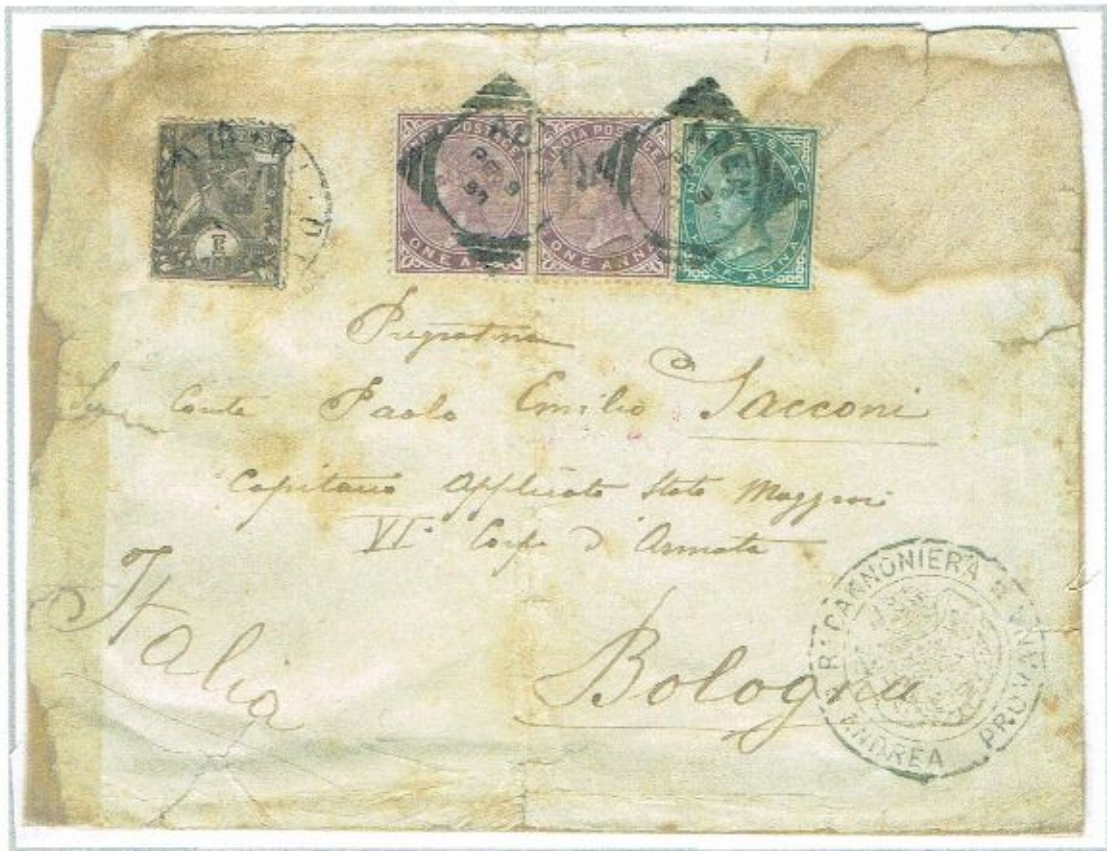 INDIA POSTAGE
ONE ANNA
INDIA POSTAGE
ONE ANNA
INDIA POSTAGE
HALF ANNA
ADEN
ADEN
Conte Paolo Emilio Sacconi
Capitano Applicato Stato Maggiore
VI° Corpo d'Armata
Italia
Bologna
R. CANNONIERA
ANDREA PROVANA